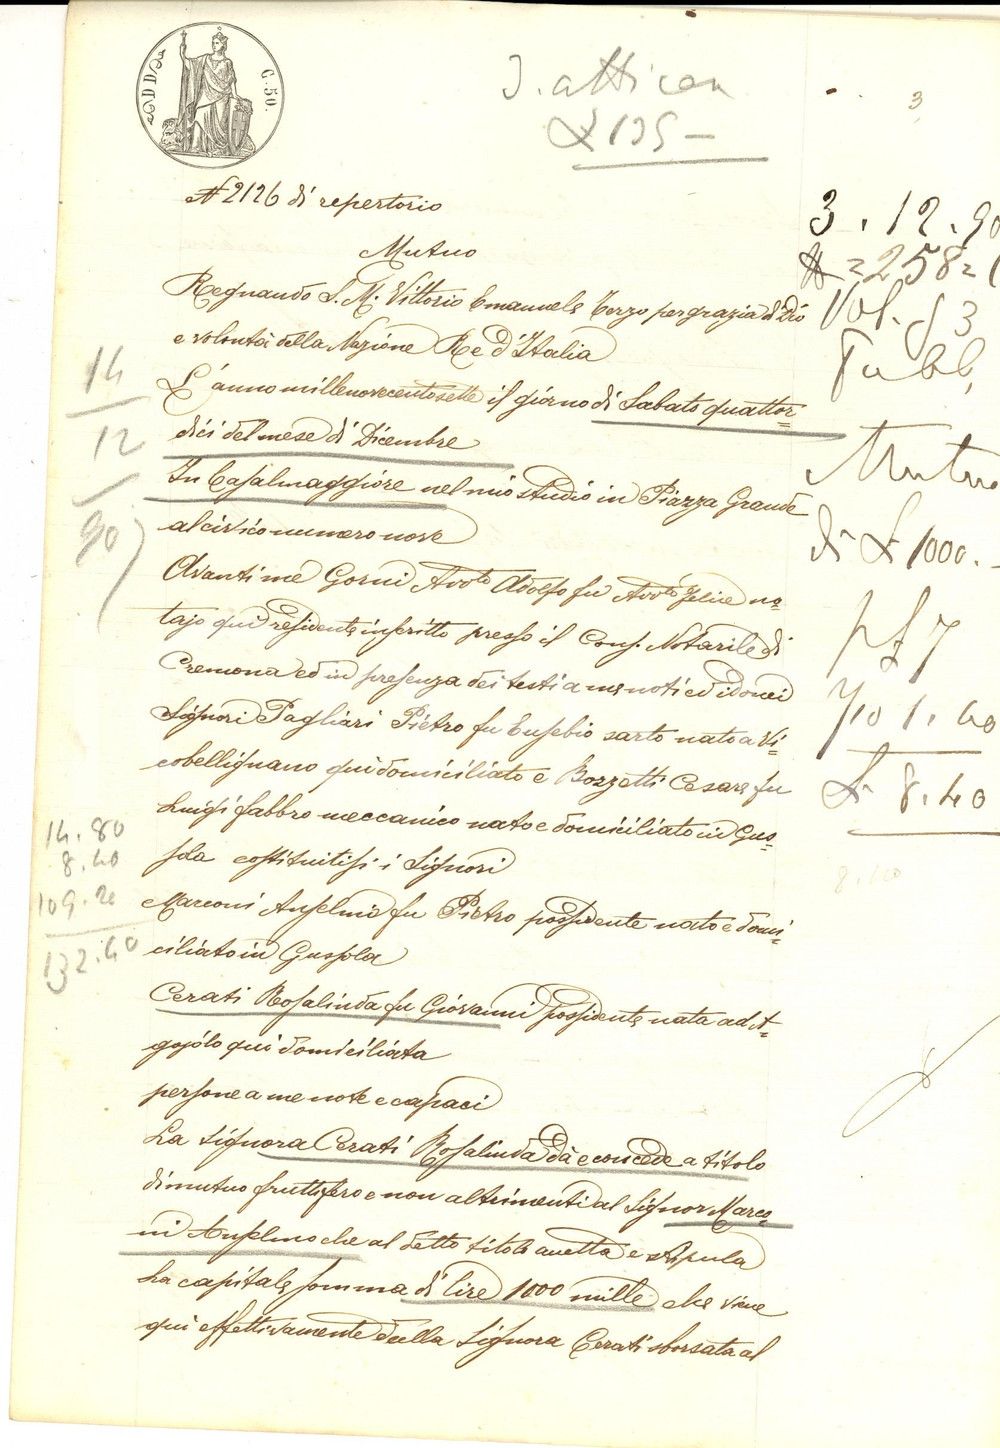 C. 50.
3
£ 135 -
N 2126 di repertorio
Mutuo
Regnando S. M. Vittorio Emanuele Terzo per grazia di Dio
e volontà della Nazione Re d'Italia
L'anno millenovecentosette il giorno di Sabato quattor=
dici del mese di Dicembre
In Casalmaggiore nel mio studio in Piazza Grande
al civico numero nove
Avanti me Gorni Avvto Adolfo fu Avvto Felice no=
tajo qui residente inscritto presso il Cons. Notarile di
Cremona ed in presenza dei testi a me noti ed idonei
Signori Pagliari Pietro fu Eusebio sarto nato a Vi=
cobellignano qui domiciliato e Bozzetti Cesare fu
Luigi fabbro meccanico nato e domiciliato in Gus=
sola costituitisi i Signori
Marconi Anselmo fu Pietro possidente nato e domi=
ciliato in Gussola
Cerati Rosalinda fu Giovanni possidente nata ad A=
gojolo qui domiciliata
persone a me note e capaci
La Signora Cerati Rosalinda dà e concede a titolo
di mutuo fruttifero e non altrimenti al Signor Marco=
ni Anselmo che al detto titolo accetta e stipula
La capitale somma di lire 1000 mille che viene
qui effettivamente dalla Signora Cerati sborsata al
14
12
90
14.80
8.40
109.20
132.40
3.12.90
258=
Vol. 93
Fabb,
Mutuo
di £ 1000.-
7
1.40
£ 8.40
8.40